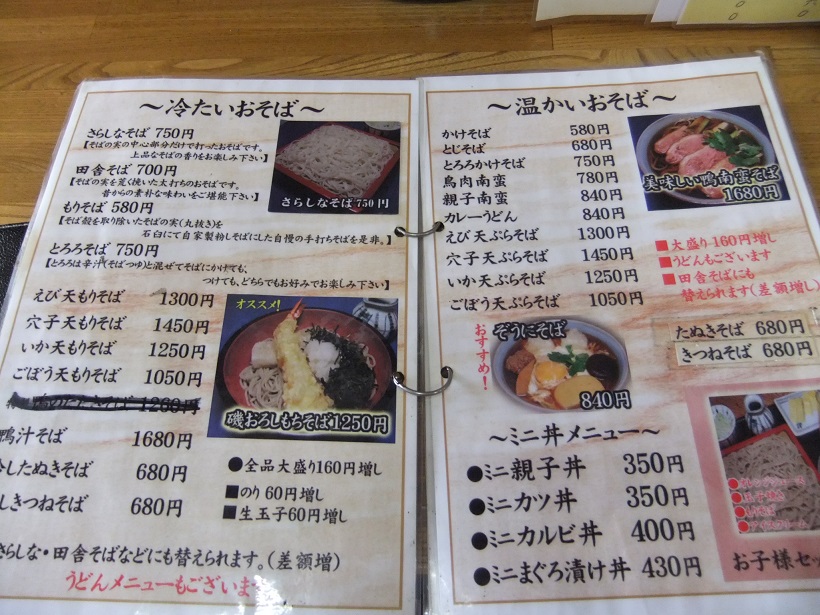 ～冷たいおそば～
さらしなそば 750円
【そばの実の中心部分だけで打ったおそばです。
上品なそばの香りをお楽しみ下さい】
田舎そば 700円
【そばの実を荒く挽いた太打ちのおそばです。
昔からの素朴な味わいをご堪能下さい】
もりそば 580円
【そば殻を取り除いたそばの実(丸抜き)を
石臼にて自家製粉しそばにした自慢の手打ちそばを是非。】
とろろそば 750円
【とろろは辛汁(そばつゆ)と混ぜてそばにかけても、
つけても、どちらでもお好みでお楽しみ下さい】
さらしなそば 750円
えび天もりそば 1300円
穴子天もりそば 1450円
いか天もりそば 1250円
ごぼう天もりそば 1050円
オススメ!
磯おろしもちそば1250円
鴨汁そば 1680円
したぬきそば 680円
しきつねそば 680円
●全品大盛り160円増し
■のり 60円増し
■生玉子60円増し
さらしな・田舎そばなどにも替えられます。(差額増)
うどんメニューもございます
～温かいおそば～
かけそば 580円
とじそば 680円
とろろかけそば 750円
鳥肉南蛮 780円
親子南蛮 840円
カレーうどん 840円
えび天ぷらそば 1300円
穴子天ぷらそば 1450円
いか天ぷらそば 1250円
ごぼう天ぷらそば 1050円
美味しい鴨南蛮そば
1680円
■大盛り160円増し
■うどんもございます
■田舎そばにも
替えられます(差額増し)
たぬきそば 680円
きつねそば 680円
おすすめ!
ぞうにそば
840円
～ミニ丼メニュー～
●ミニ親子丼 350円
●ミニカツ丼 350円
●ミニカルビ丼 400円
●ミニまぐろ漬け丼 430円
●オレンジジュース
●玉子焼き
●もりそば
●アイスクリーム
お子様セッ